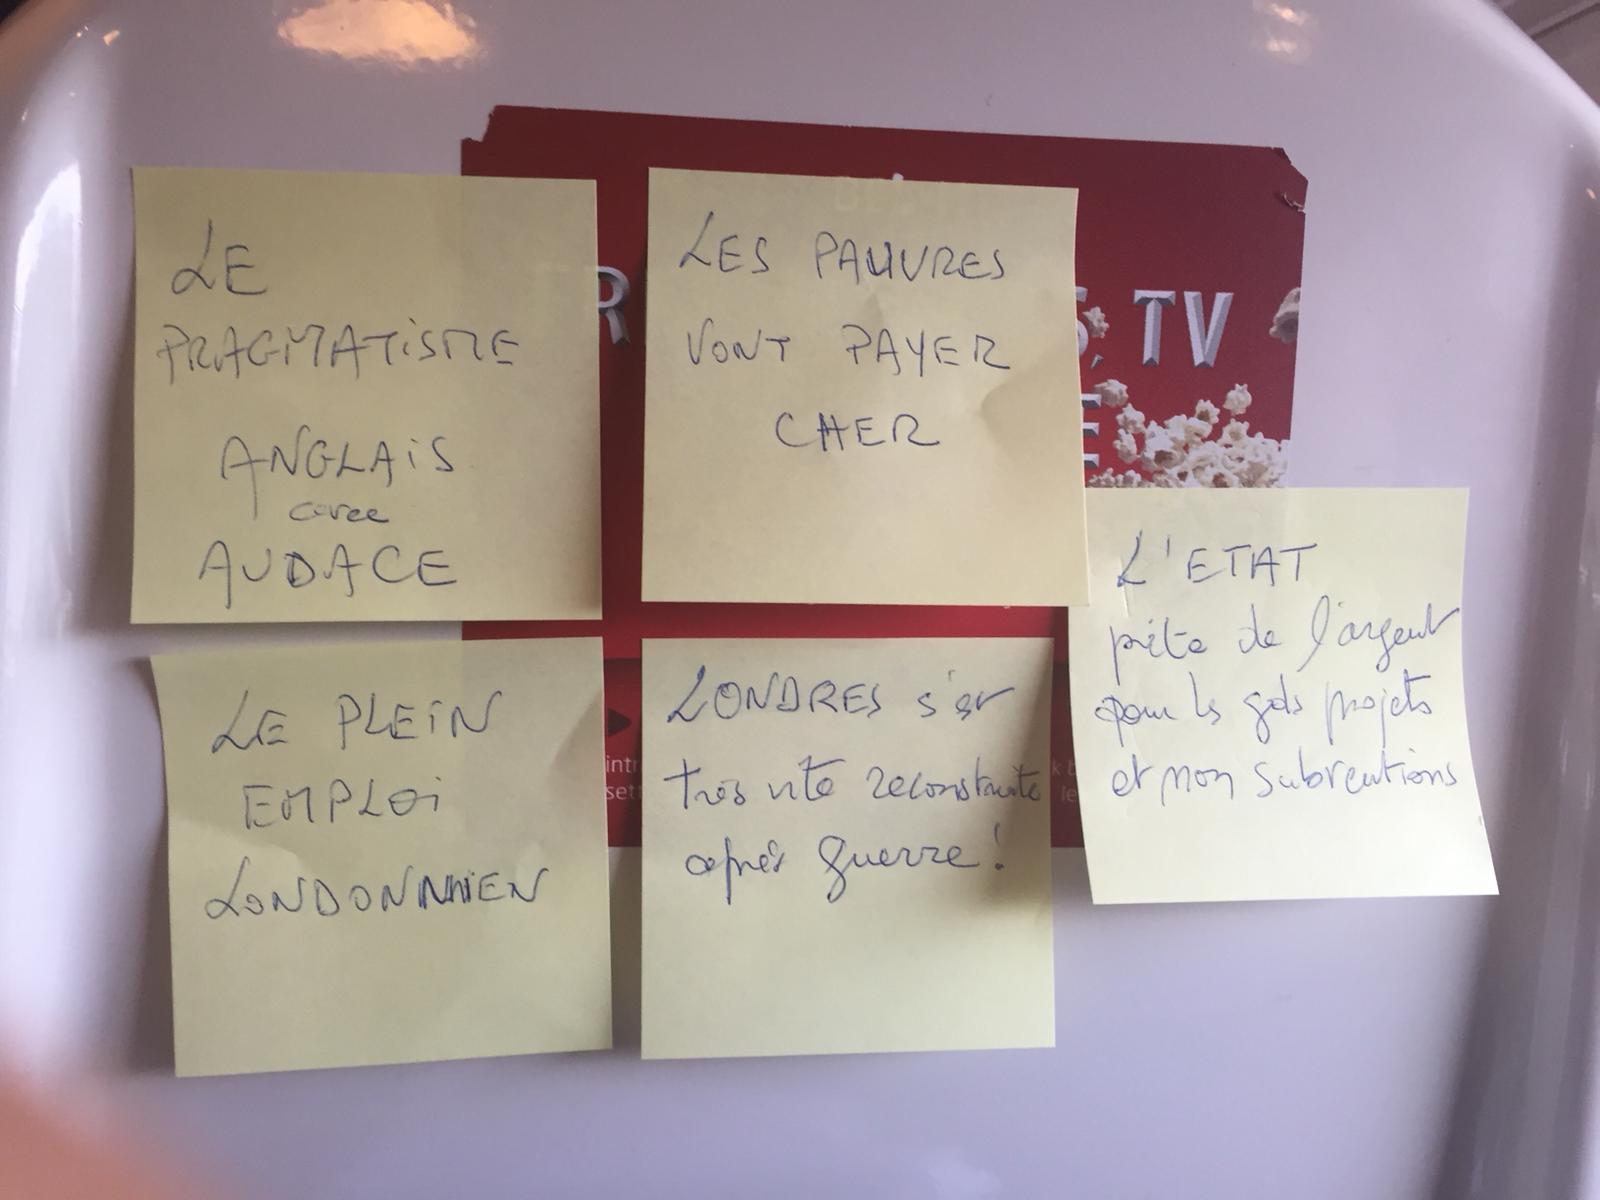 LE
PRAGMATISME
ANGLAIS
avec
AUDACE
LES PAUVRES
VONT PAYER
CHER
L'ETAT
prête de l'argent
pour les gds projets
et non subventions
LE PLEIN
EMPLOI
LONDONNIEN
LONDRES s'est
très vite reconstruite
après guerre !
R
, TV
E
intr
set
k b
le